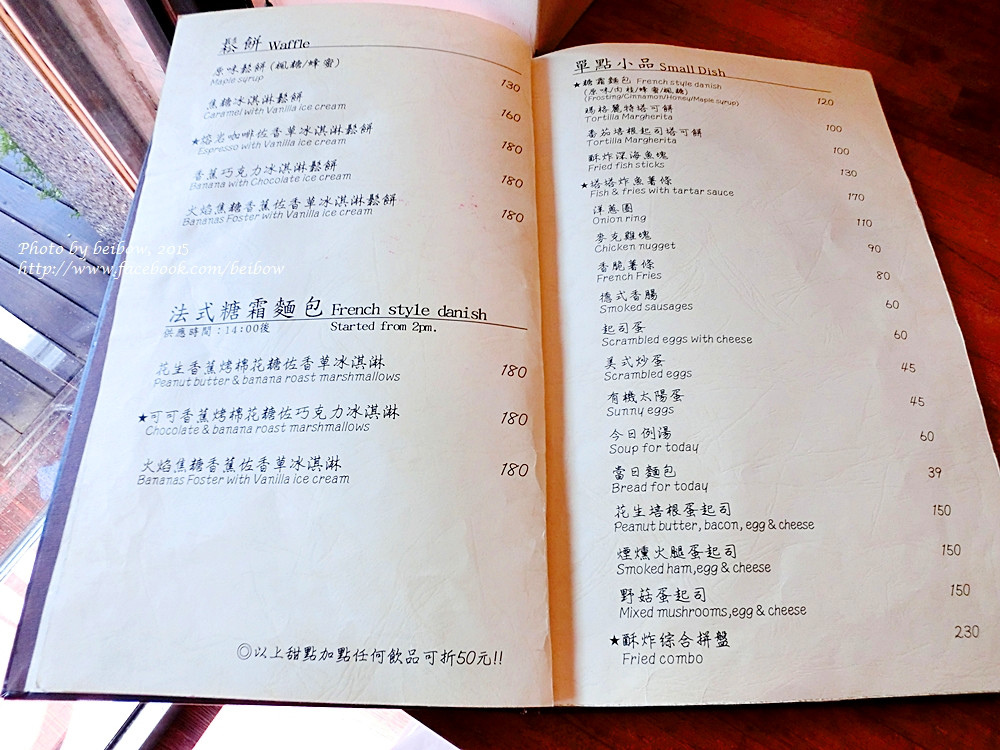 鬆餅 Waffle
原味鬆餅(楓糖/蜂蜜) 130
Maple syrup
焦糖冰淇淋鬆餅 160
Caramel with Vanilla ice cream
★熔岩咖啡佐香草冰淇淋鬆餅 180
Espresso with Vanilla ice cream
香蕉巧克力冰淇淋鬆餅 180
Banana with Chocolate ice cream
火焰焦糖香蕉佐香草冰淇淋鬆餅 180
Bananas Foster with Vanilla ice cream
Photo by beibow, 2015
http://www.facebook.com/beibow
法式糖霜麵包 French style danish
供應時間：14:00後 Started from 2pm.
花生香蕉烤棉花糖佐香草冰淇淋 180
Peanut butter & banana roast marshmallows
★可可香蕉烤棉花糖佐巧克力冰淇淋 180
Chocolate & banana roast marshmallows
火焰焦糖香蕉佐香草冰淇淋 180
Bananas Foster with Vanilla ice cream
◎以上甜點加點任何飲品可折50元!!
單點小品 Small Dish
★糖霜麵包 French style danish 120
(原味/肉桂/蜂蜜/楓糖)
(Frosting/Cinnamon/Honey/Maple syrup)
瑪格麗特塔可餅 100
Tortilla Margherita
番茄培根起司塔可餅 100
Tortilla Margherita
酥炸深海魚塊 130
Fried fish sticks
★塔塔炸魚薯條 170
Fish & fries with tartar sauce
洋蔥圈 110
Onion ring
麥克雞塊 90
Chicken nugget
香脆薯條 80
French Fries
德式香腸 60
Smoked sausages
起司蛋 60
Scrambled eggs with cheese
美式炒蛋 45
Scrambled eggs
有機太陽蛋 45
Sunny eggs
今日例湯 60
Soup for today
當日麵包 39
Bread for today
花生培根蛋起司 150
Peanut butter, bacon, egg & cheese
煙燻火腿蛋起司 150
Smoked ham,egg & cheese
野菇蛋起司 150
Mixed mushrooms,egg & cheese
★酥炸綜合拼盤 230
Fried combo